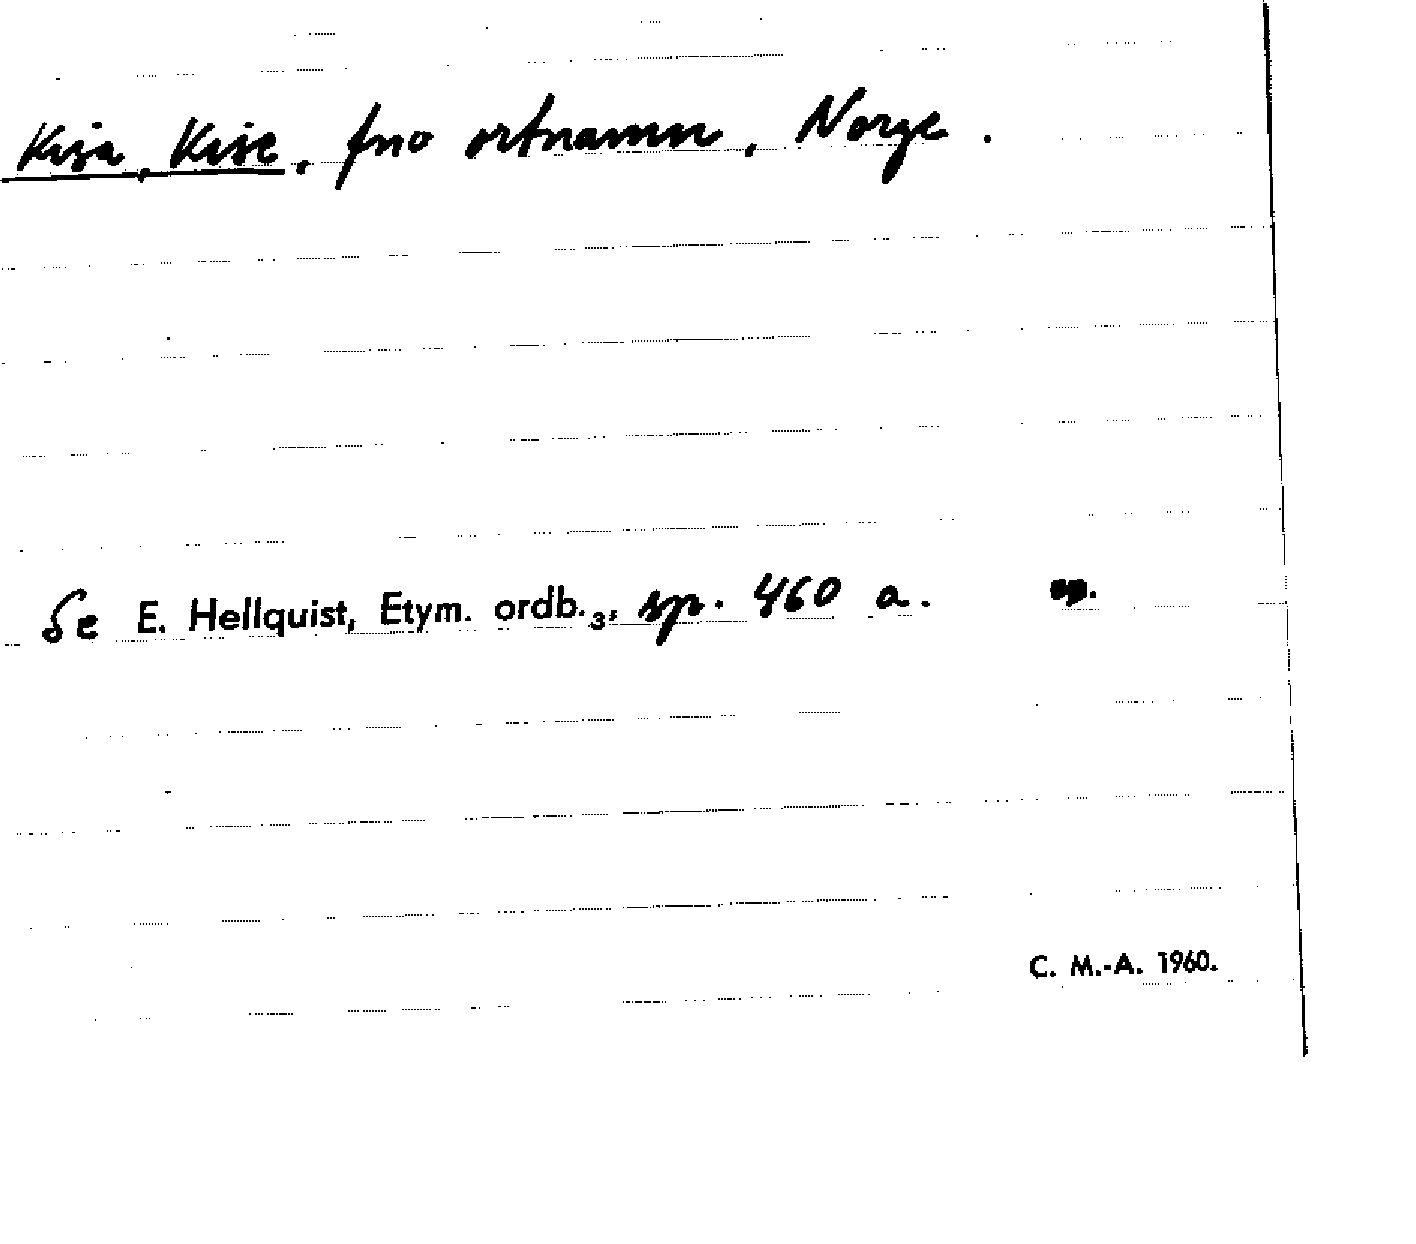 Kisa, Kise, fno ortnamn, Norge.
Se E. Hellquist, Etym. ordb.₃, sp. 460 a.
C. M.-A. 1960.